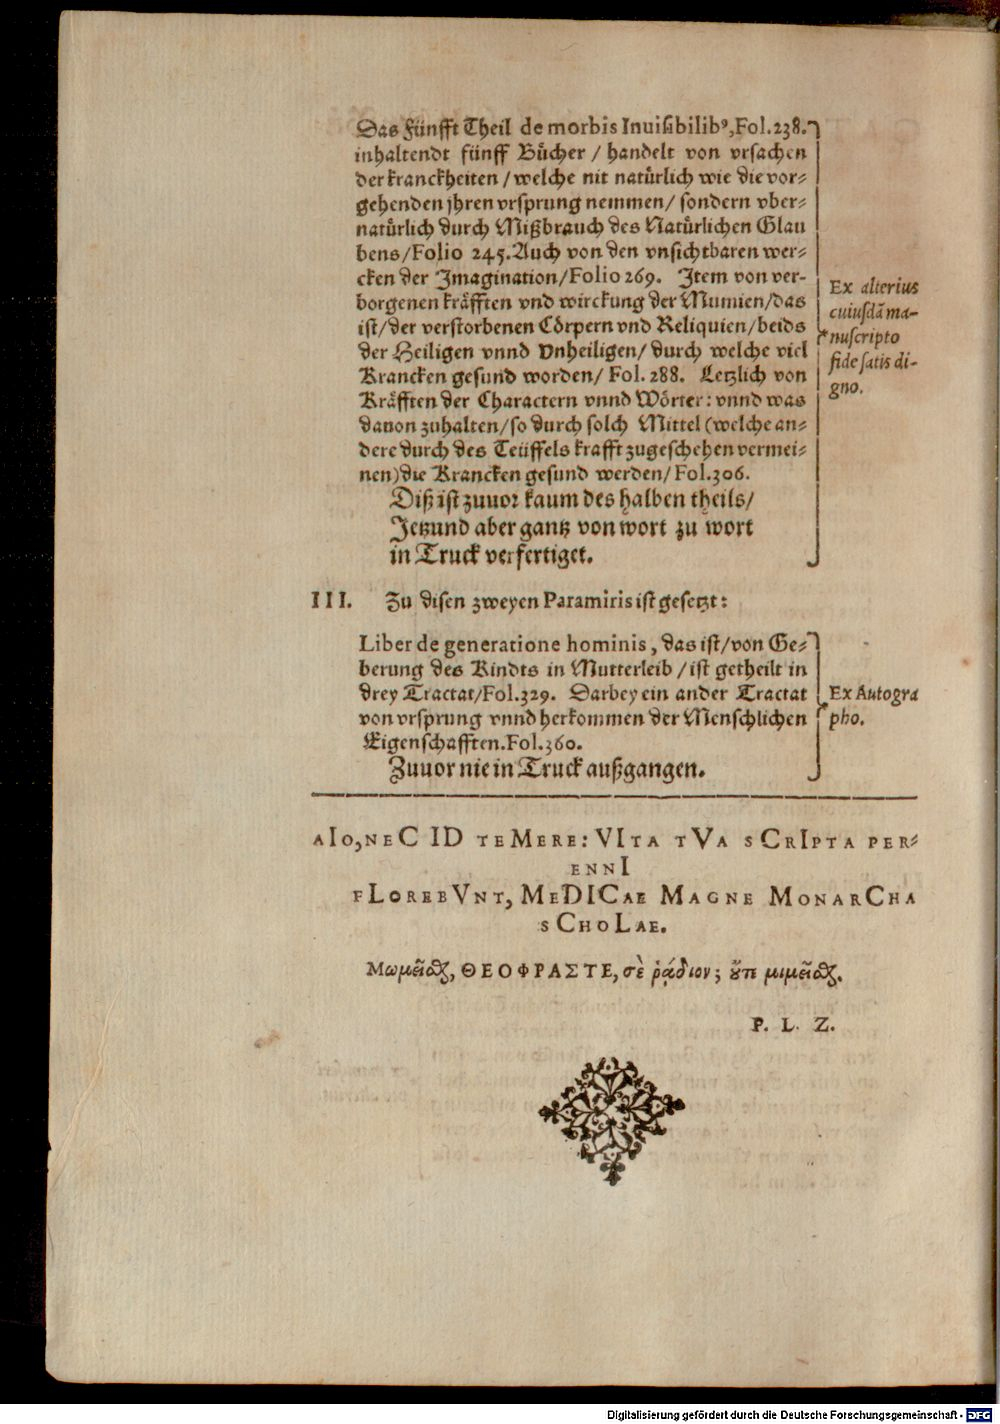 Das Fünfft Theil de morbis Inuisibilibꝰ, Fol. 238.
inhaltendt fünff Bücher / handelt von vrsachen
der kranckheiten / welche nit natürlich wie die vor-
gehenden jhren vrsprung nemmen / sondern vber-
natürlich durch Mißbrauch des Natürlichen Glau
bens / Folio 245. Auch von den vnsichtbaren wer-
cken der Imagination / Folio 269. Item von ver-
borgenen kräfften vnd wirckung der Mumien / das
ist / der verstorbenen Cörpern vnd Reliquien / beids
der Heiligen vnnd Vnheiligen / durch welche viel
Krancken gesund worden / Fol. 288. Letzlich von
Kräfften der Charactern vnnd Wörter: vnnd was
dauon zuhalten / so durch solch Mittel (welche an-
dere durch des Teüffels krafft zugeschehen vermei-
nen) die Krancken gesund werden / Fol. 306.
Diß ist zuuor kaum des halben theils /
Jetzund aber gantz von wort zu wort
in Truck verfertiget.
Ex alterius
cuiusdã ma-
nuscripto
fide satis di-
gno.
III. Zu disen zweyen Paramiris ist gesetzt:
Liber de generatione hominis, das ist / von Ge-
berung des Kindts in Mutterleib / ist getheilt in
drey Tractat / Fol. 329. Darbey ein ander Tractat
von vrsprung vnnd herkommen der Menschlichen
Eigenschafften. Fol. 360.
Zuuor nie in Truck außgangen.
Ex Autogra
pho.
AIO, NEC ID TEMERE: VITA TVA SCRIPTA PER-
ENNI
FLOREBVNT, MEDICAE MAGNE MONARCHA
SCHOLAE.
Μωμεῖσθαι, ΘΕΟΦΡΑΣΤΕ, σὲ ῥᾴδιον; οὔτι μιμεῖσθαι.
P. L. Z.
Digitalisierung gefördert durch die Deutsche Forschungsgemeinschaft - DFG